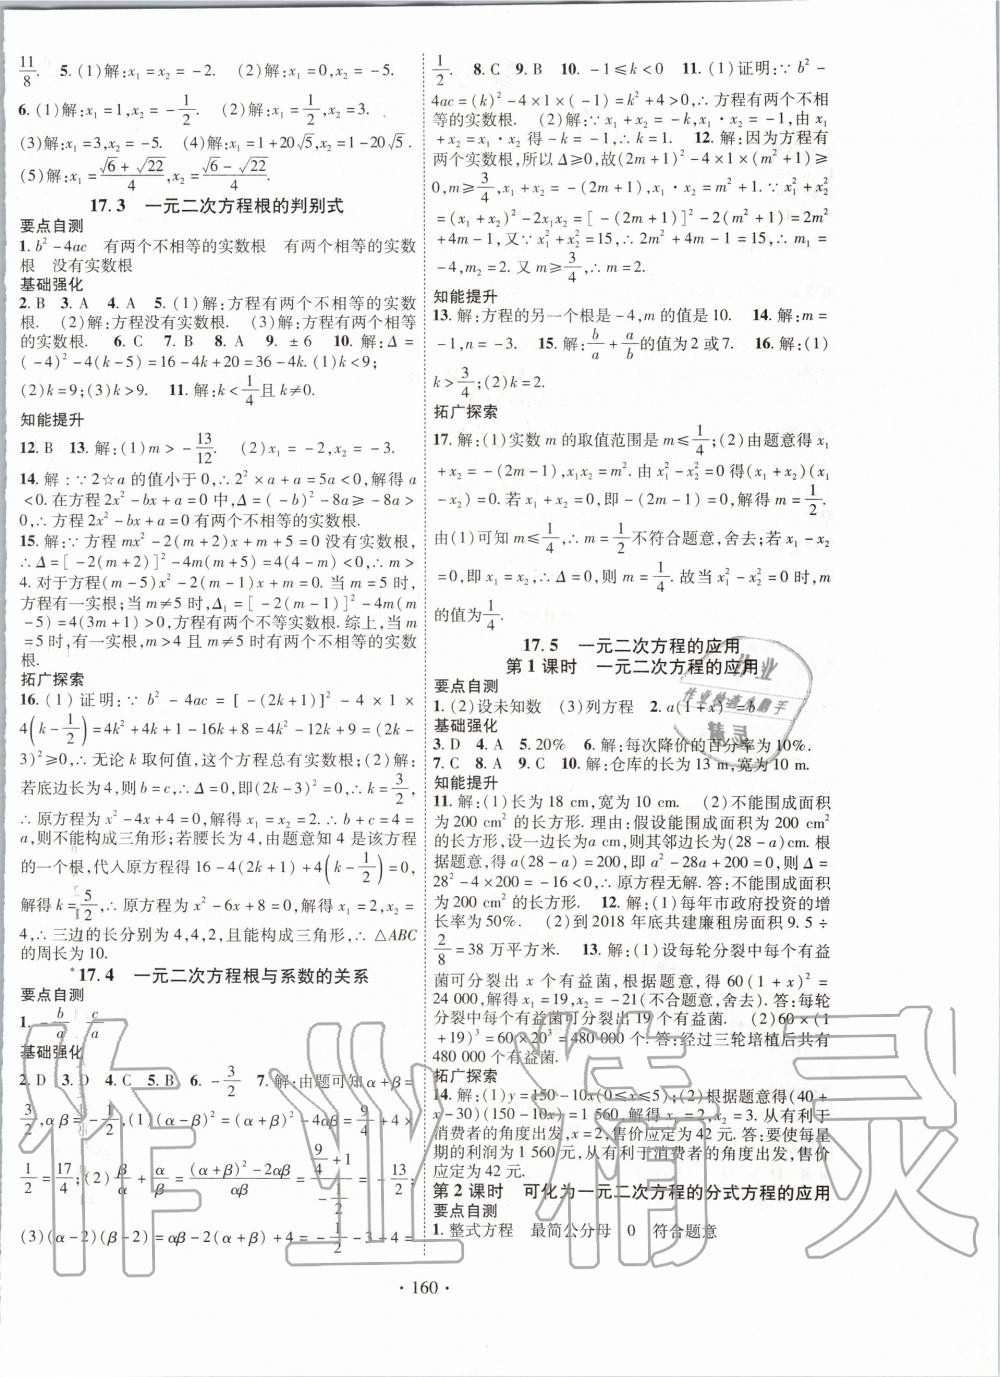 11/8. 5. (1)解:x₁=x₂=-2. (2)解:x₁=0,x₂=-5.
6. (1)解:x₁=1,x₂=-1/2. (2)解:x₁=1/2,x₂=3.
(3)解:x₁=3,x₂=-5. (4)解:x₁=1+20√5,x₂=1-20√5.
(5)解:x₁=(√6+√22)/4,x₂=(√6-√22)/4.
17.3 一元二次方程根的判别式
要点自测
1. b²-4ac 有两个不相等的实数根 有两个相等的实数
根 没有实数根
基础强化
2. B 3. A 4. A 5. (1)解:方程有两个不相等的实数
根. (2)解:方程没有实数根. (3)解:方程有两个相等
的实数根. 6. C 7. B 8. A 9. ±6 10. 解:Δ=
(-4)²-4(k-5)=16-4k+20=36-4k. (1)k<9;
(2)k=9;(3)k>9. 11. 解:k<1/4且k≠0.
知能提升
12. B 13. 解:(1)m>-13/12. (2)x₁=-2,x₂=-3.
14. 解:∵2☆a的值小于0,∴2²×a+a=5a<0,解得a
<0. 在方程2x²-bx+a=0中,Δ=(-b)²-8a≥-8a>
0,∴方程2x²-bx+a=0有两个不相等的实数根.
15. 解:∵方程mx²-2(m+2)x+m+5=0没有实数根,
∴Δ=[-2(m+2)]²-4m(m+5)=4(4-m)<0,∴m>
4. 对于方程(m-5)x²-2(m-1)x+m=0. 当m=5时,
方程有一实根;当m≠5时,Δ₁=[-2(m-1)]²-4m(m
-5)=4(3m+1)>0,方程有两个不等实数根. 综上,当m
=5时,有一实根,m>4且m≠5时有两个不相等的实数
根.
拓广探索
16. (1)证明:∵b²-4ac=[-(2k+1)]²-4×1×
4(k-1/2)=4k²+4k+1-16k+8=4k²-12k+9=(2k-3
)²≥0,∴无论k取何值,这个方程总有实数根;(2)解:
若底边长为4,则b=c,∴Δ=0,即(2k-3)²=0,k=3/2.
∴原方程为x²-4x+4=0,解得x₁=x₂=2. ∴b+c=4=
a,则不能构成三角形;若腰长为4,由题意知4是该方程
的一个根,代入原方程得16-4(2k+1)+4(k-1/2)=0,
解得k=5/2,∴原方程为x²-6x+8=0,解得x₁=2,x₂=
4,∴三边的长分别为4,4,2,且能构成三角形,∴△ABC
的周长为10.
*17.4 一元二次方程根与系数的关系
要点自测
1. -b/a c/a
基础强化
2. D 3. D 4. C 5. B 6. -3/2 7. 解:由题可知α+β=
3/2,αβ=-1/2,(1)(α-β)²=(α+β)²-4αβ=9/4+4×
1/2=17/4;(2)β/α+α/β=((α+β)²-2αβ)/αβ=(9/4+1)/(-1/2)=-13/2;
(3)(α-2)(β-2)=αβ-2(α+β)+4=-1/2-3+4=
1/2. 8. C 9. B 10. -1≤k<0 11. (1)证明:∵b²-
4ac=(k)²-4×1×(-1)=k²+4>0,∴方程有两个不相
等的实数根. (2)解:∵x₁+x₂=-k,x₁·x₂=-1,由x₁
+x₂=x₁·x₂得-k=-1,∴k=1. 12. 解:因为方程有
两个实数根,所以Δ≥0,故(2m+1)²-4×1×(m²+1)≥
0,m≥3/4,x₁+x₂=-(2m+1),x₁·x₂=m²+1. ∵x₁²+x₂²
=(x₁+x₂)²-2x₁x₂=[-(2m+1)]²-2(m²+1)=2m²
+4m-1,又∵x₁²+x₂²=15,∴2m²+4m-1=15,∴m₁=
-4,m₂=2. 又m≥3/4,∴m=2.
知能提升
13. 解:方程的另一个根是-4,m的值是10. 14. 解:m=
-1,n=-3. 15. 解:b/a+a/b的值为2或7. 16. 解:(1)
k>3/4;(2)k=2.
拓广探索
17. 解:(1)实数m的取值范围是m≤1/4;(2)由题意得x₁
+x₂=-(2m-1),x₁x₂=m². 由x₁²-x₂²=0得(x₁+x₂)(x₁
-x₂)=0. 若x₁+x₂=0,即-(2m-1)=0,解得m=1/2.
由(1)可知m≤1/4,∴m=1/2不符合题意,舍去;若x₁-x₂
=0,即x₁=x₂,∴Δ=0,则m=1/4. 故当x₁²-x₂²=0时,m
的值为1/4.
17.5 一元二次方程的应用
第1课时 一元二次方程的应用
要点自测
1. (2)设未知数 (3)列方程 2. a(1+x)²=b
基础强化
3. D 4. A 5. 20% 6. 解:每次降价的百分率为10%.
7. C 8. C 9. B 10. 解:仓库的长为13 m,宽为10 m.
知能提升
11. 解:(1)长为18 cm,宽为10 cm. (2)不能围成面积
为200 cm²的长方形. 理由:假设能围成面积为200 cm²
的长方形,设一边长为a cm,则其邻边长为(28-a)cm. 根
据题意,得a(28-a)=200,即a²-28a+200=0,则Δ=
28²-4×200=-16<0,∴原方程无解. 答:不能围成面积
为200 cm²的长方形. 12. 解:(1)每年市政府投资的增
长率为50%. (2)到2018年底共建廉租房面积9.5÷
2/8=38万平方米. 13. 解:(1)设每轮分裂中每个有益
菌可分裂出x个有益菌,根据题意,得60(1+x)²=
24 000,解得x₁=19,x₂=-21(不合题意,舍去). 答:每轮
分裂中每个有益菌可分裂出19个有益菌. (2)60×(1
+19)³=60×20³=480 000个. 答:经过三轮培植后共有
480 000个有益菌.
拓广探索
14. 解:(1)y=150-10x(0≤x≤5);(2)根据题意得(40+
x-30)(150-10x)=1 560. 解得x₁=2,x₂=3. 从有利于
消费者的角度出发,x=2,售价应定为42元. 答:要使每星
期的利润为1 560元,从有利于消费者的角度出发,售价
应定为42元.
第2课时 可化为一元二次方程的分式方程的应用
要点自测
1. 整式方程 最简公分母 0 符合题意
·160·
作业精灵
作业
作业检查小帮手
精灵